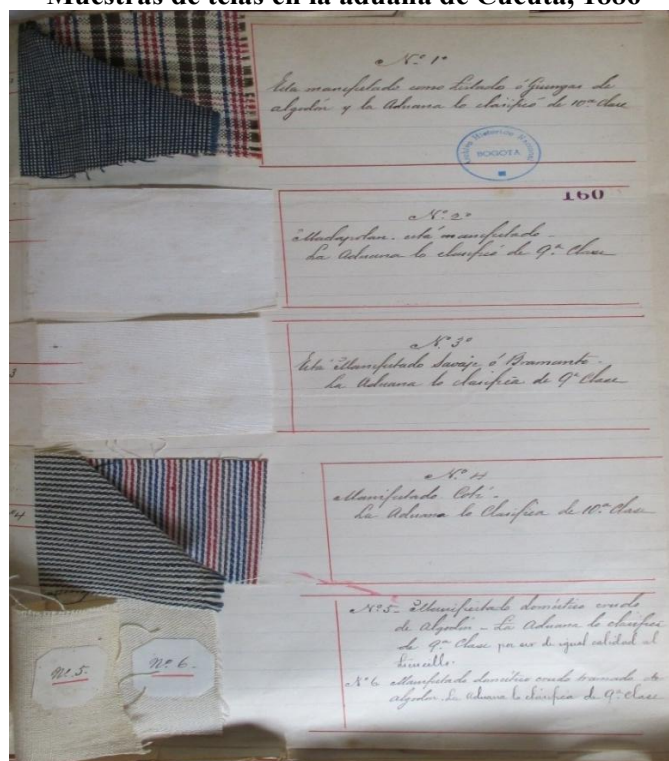 Muestras de telas en la aduana de Cúcuta, 1886
Nº 1º
Esta manifestado como Listado ó Guingas de
algodón y la Aduana lo clasificó de 10ª Clase
Archivo Histórico Nacional
BOGOTA
160
Nº 2º
Madapolan está manifestado _
La Aduana lo clasificó de 9ª Clase
Nº 3º
3
Está Manifestado Savaje ó Bramante _
La Aduana lo clasifica de 9ª Clase
Nº 4
Manifestado Coti _
La Aduana lo Clasifica de 10ª Clase
Nº 5 _ Manifestado doméstico crudo
de Algodón _ La Aduana lo clasifica
de 9ª Clase por ser de igual calidad al
Nº 5.
Nº 6.
Nº 6 Manifestado doméstico crudo tramado de
algodon. La Aduana lo clasifica de 9ª Clase